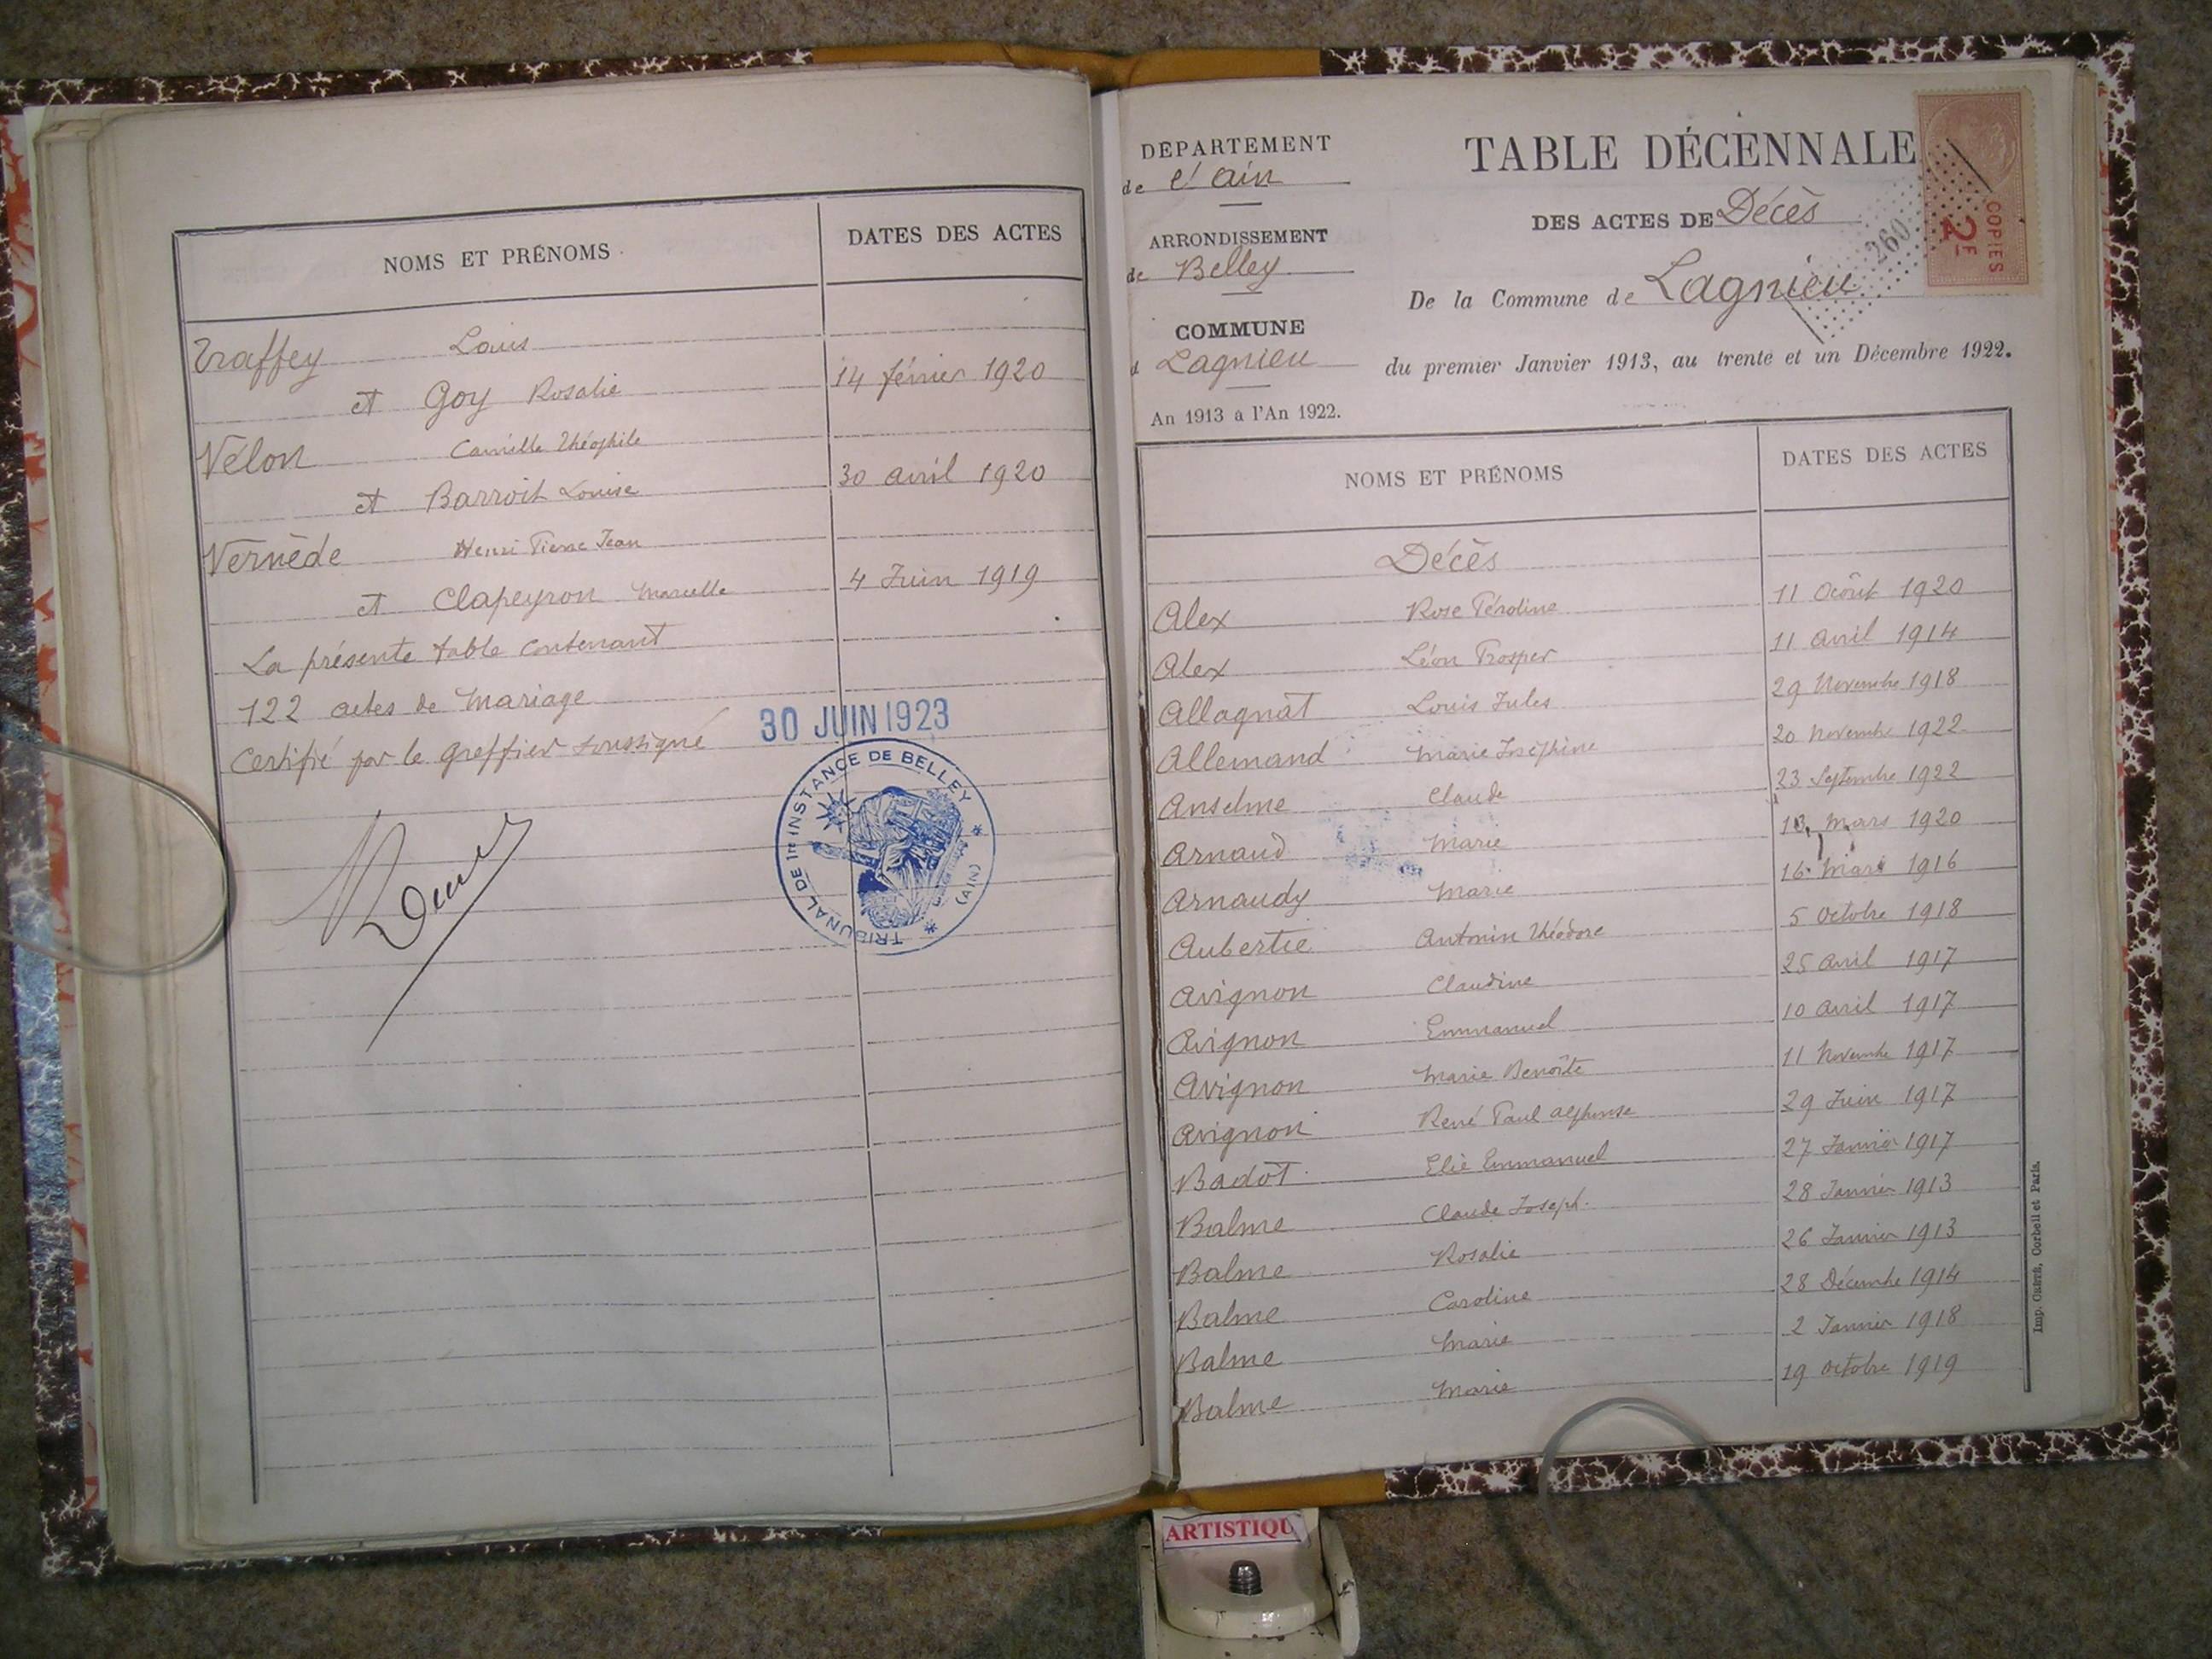 NOMS ET PRÉNOMS DATES DES ACTES
Traffey Louis
et Goy Rosalie 14 février 1920
Vélon Camille Théophile
et Barroit Louise 30 avril 1920
Vernède Henri Pierre Jean
et Clapeyron Marcelle 4 Juin 1919
La présente table contenant
122 actes de Mariage
Certifié par le Greffier soussigné
30 JUIN 1923
TRIBUNAL DE 1re INSTANCE DE BELLEY
(AIN)
DEPARTEMENT
de l'ain
ARRONDISSEMENT
de Belley
COMMUNE
d Lagnieu
An 1913 à l'An 1922.
TABLE DÉCENNALE
DES ACTES DE Décès
De la Commune de Lagnieu
du premier Janvier 1913, au trente et un Décembre 1922.
COPIES
2F
260
NOMS ET PRÉNOMS DATES DES ACTES
Décès
Alex Rose Péroline 11 Août 1920
Alex Léon Prosper 11 avril 1914
Allagnat Louis Jules 29 Novembre 1918
Allemand Marie Joséphine 20 Novembre 1922
Anselme Claude 23 Septembre 1922
Arnaud Marie 13 Mars 1920
Arnaudy Marie 16 Mars 1916
Aubertie Antonin Théodore 5 Octobre 1918
Avignon Claudine 25 avril 1917
Avignon Emmanuel 10 avril 1917
Avignon Marie Benoîte 11 Novembre 1917
Avignon René Paul alphonse 29 Juin 1917
Badot Elie Emmanuel 27 Janvier 1917
Balme Claude Joseph. 28 Janvier 1913
Balme Rosalie 26 Janvier 1913
Balme Caroline 28 Décembre 1914
Balme Marie 2 Janvier 1918
Balme Marie 19 octobre 1919
Corbeil et Paris.
ARTISTIQU